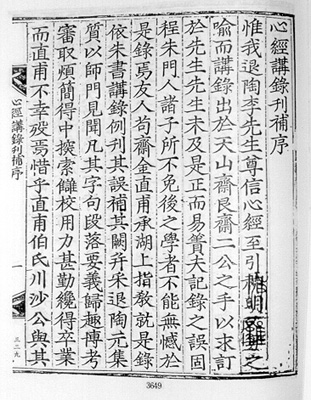 心經講錄刊補序
惟我退陶李先生尊信心經至引神明嚴父之
喩而講錄出於天山齋艮齋二公之手以求訂
於先生先生未及是正而易簀夫記錄之誤固
程朱門人諸子所不免後之學者不能無憾於
是錄焉友人苟齋金直甫承湖上指敎就是錄
依朱書講錄例刊其誤補其闕幷采退陶元集
質以師門見聞凡其字句段落要義歸趣博考
審取煩簡得中探索讎校用力甚勤纔得卒業
而直甫不幸歿焉惜乎直甫伯氏川沙公與其
心經講錄刊補序 一
三二九
3649